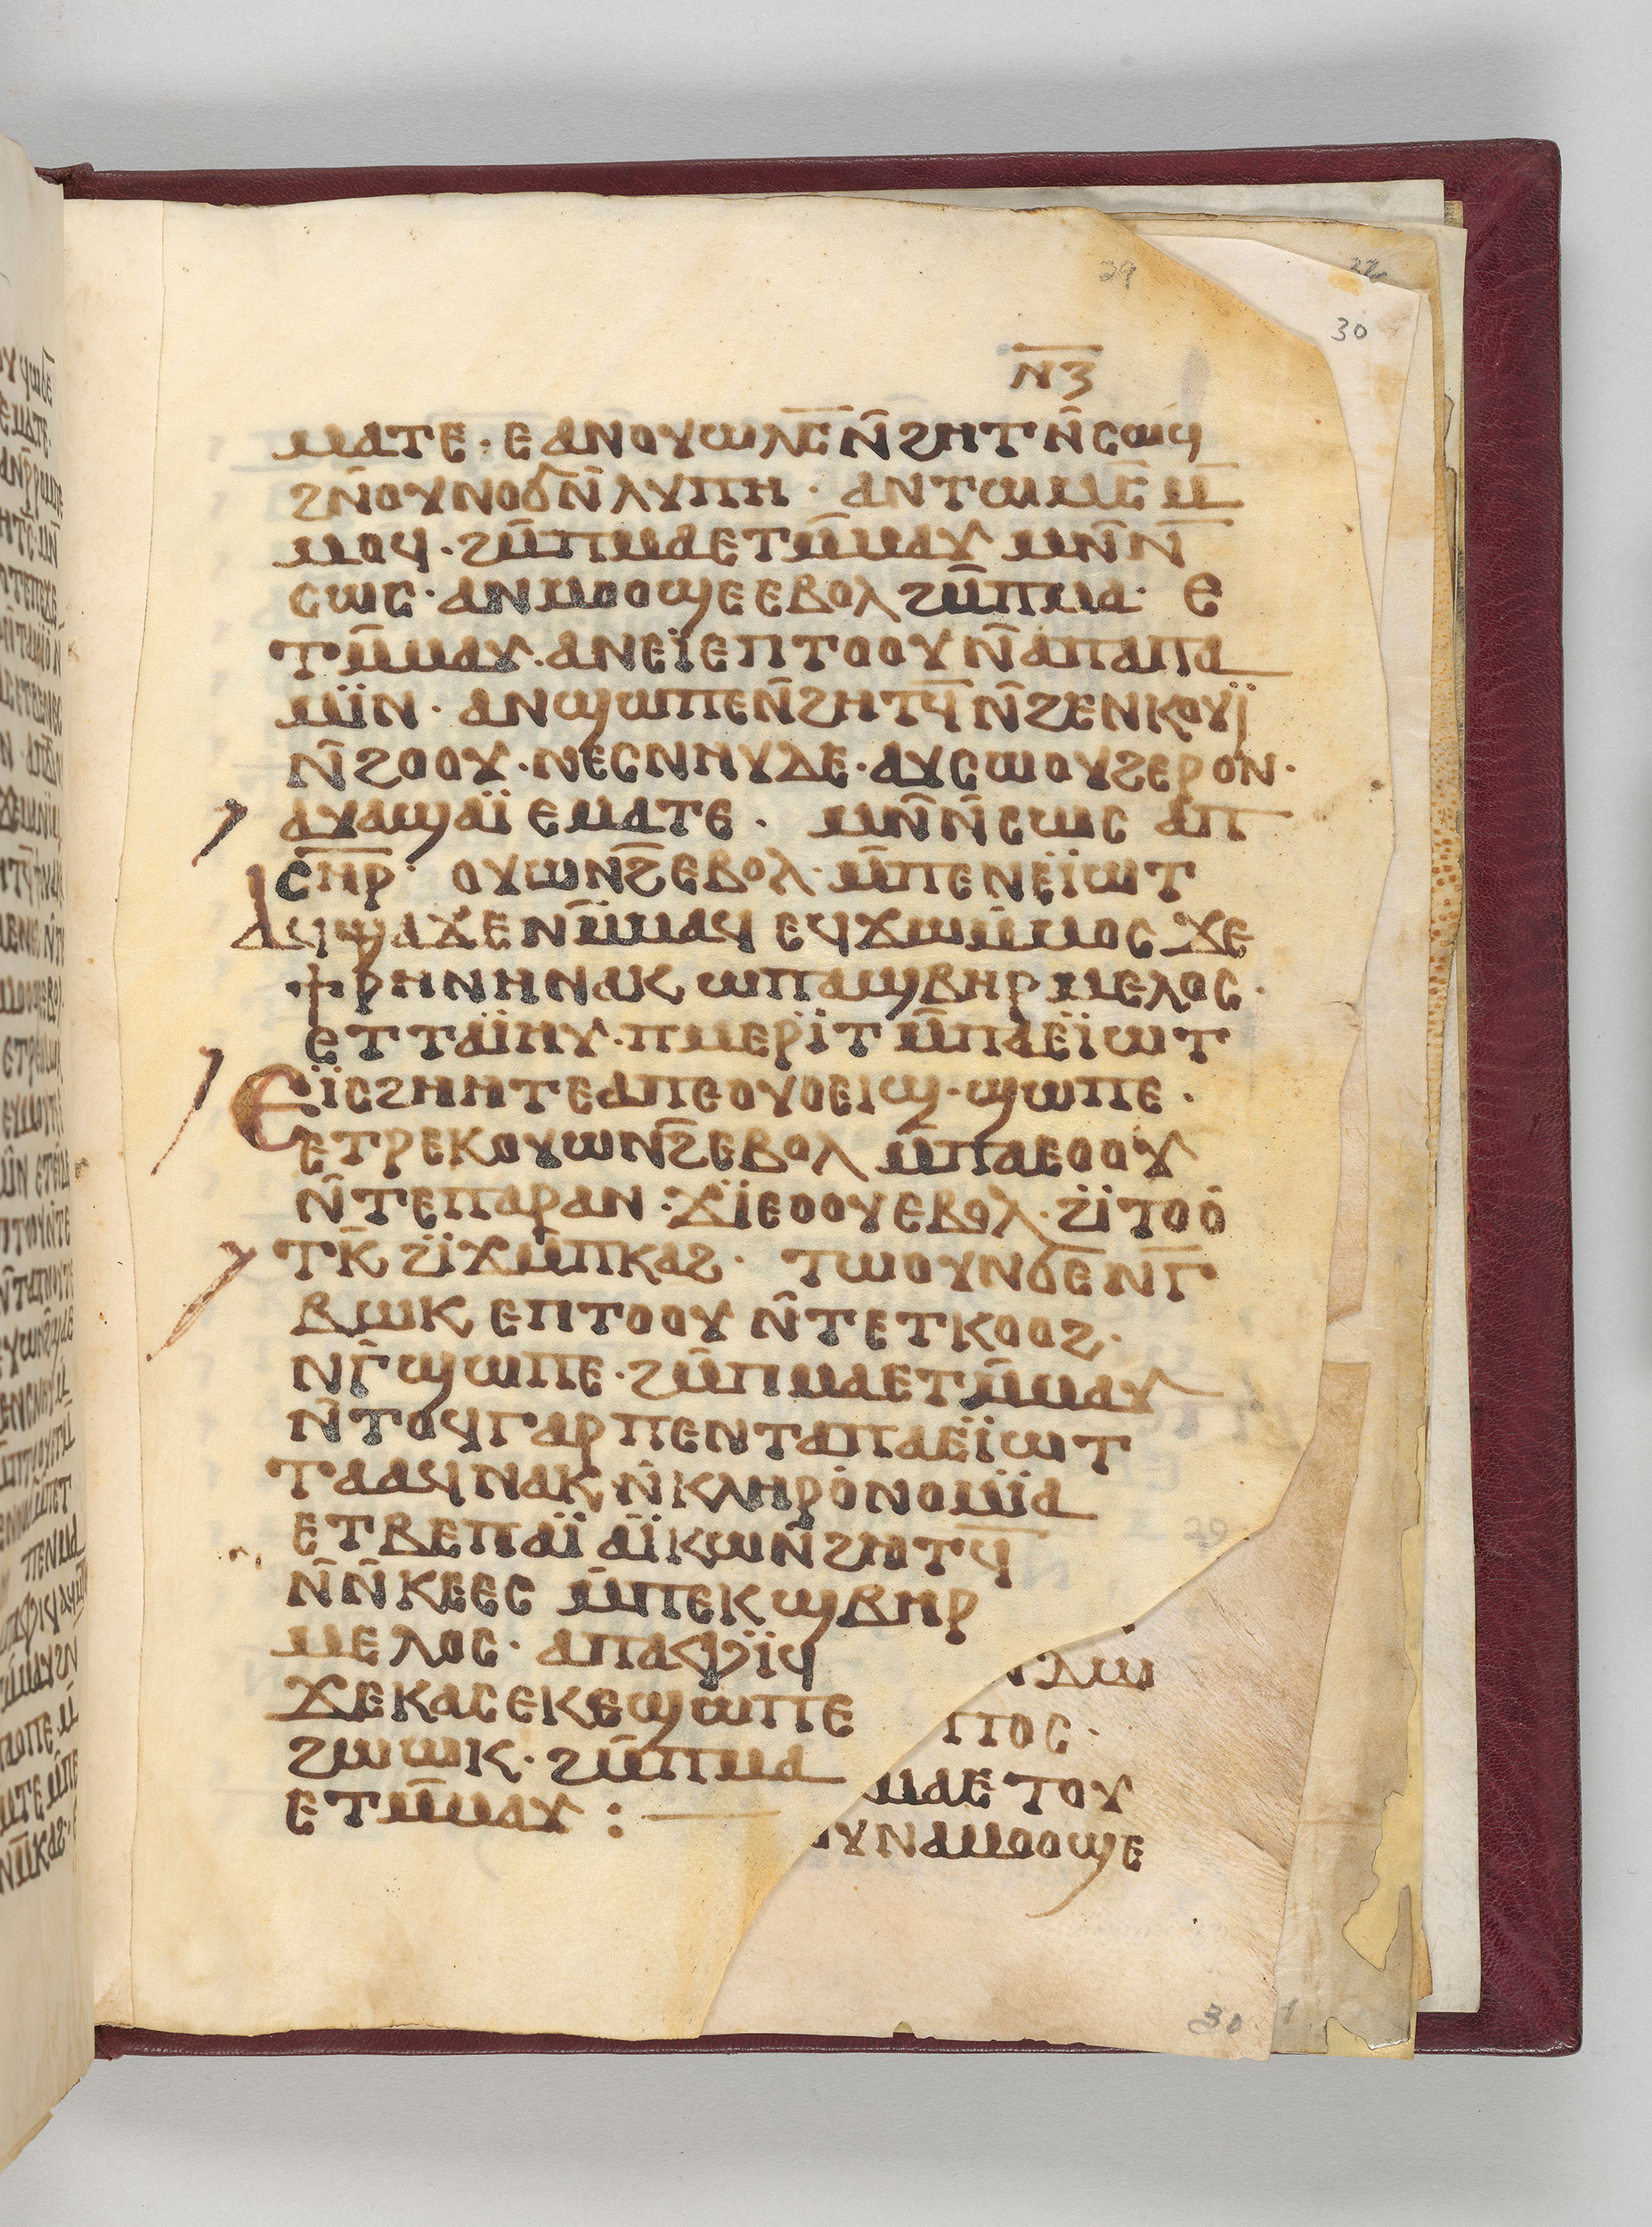 29
30
ⲛ̅ⲍ̅
ⲙⲁⲧⲉ· ⲉⲁⲛⲟⲩⲱⲗⲥ̅ⲛ̅ϩⲏⲧⲛ̅ⲥⲱϥ
ϩⲛ̅ⲟⲩⲛⲟϭⲛ̅ⲗⲩⲡⲏ· ⲁⲛⲧⲱⲙⲥ̅ⲙ̅
ⲙⲟϥ· ϩⲙ̅ⲡⲙⲁⲉⲧⲙ̅ⲙⲁⲩ ⲙⲛ̅ⲛ̅
ⲥⲱⲥ· ⲁⲛⲙⲟⲟϣⲉⲉⲃⲟⲗϩⲙ̅ⲡⲙⲁ· ⲉ
ⲧⲙ̅ⲙⲁⲩ·ⲁⲛⲉⲓ̈ⲉⲡⲧⲟⲟⲩⲛ̅ⲁⲡⲁⲡⲁ
ⲙⲓ̈ⲛ· ⲁⲛϣⲱⲡⲉⲛ̅ϩⲏⲧϥ̅ⲛ̅ϩⲉⲛⲕⲟⲩⲓ̈
ⲛ̅ϩⲟⲟⲩ·ⲛⲉⲥⲛⲏⲩⲇⲉ·ⲁⲩⲥⲱⲟⲩϩⲉⲣⲟⲛ·
ⲁⲩⲁϣⲁⲓ̈ ⲉⲙⲁⲧⲉ· ⲙⲛ̅ⲛ̅ⲥⲱⲥ ⲁⲡ
ⲥ̅ⲏ̅ⲣ̅· ⲟⲩⲱⲛϩ̅ⲉⲃⲟⲗ·ⲙ̅ⲡⲉⲛⲉⲓ̈ⲱⲧ
ⲁϥϣⲁϫⲉⲛⲙ̅ⲙⲁϥ ⲉϥϫⲱⲙ̅ⲙⲟⲥ ϫⲉ
ϯⲣⲏⲛⲏⲛⲁⲕ ⲱⲡⲁϣⲃⲏⲣⲙⲉⲗⲟⲥ·
ⲉⲧⲧⲁⲓ̈ⲏⲩ·ⲡⲙⲉⲣⲓ̈ⲧ ⲙ̅ⲡⲁⲉⲓ̈ⲱⲧ
ⲉⲓ̈ⲥϩⲏⲏⲧⲉⲁⲡⲉⲟⲩⲟⲉⲓϣ·ϣⲱⲡⲉ·
ⲉⲧⲣⲉⲕⲟⲩⲱⲛϩ̅ⲉⲃⲟⲗ ⲙ̅ⲡⲁⲉⲟⲟⲩ
ⲛ̅ⲧⲉⲡⲁⲣⲁⲛ·ϫⲓ̈ⲉⲟⲟⲩⲉⲃⲟⲗ·ϩⲓ̈ⲧⲟⲟ
ⲧⲕ̅ ϩⲓ̈ϫⲙ̅ⲡⲕⲁϩ· ⲧⲱⲟⲩⲛϭⲉⲛⲅ̅
ⲃⲱⲕ ⲉⲡⲧⲟⲟⲩ ⲛ̅ⲧⲉⲧⲕⲟⲟϩ·
ⲛⲅ̅ϣⲱⲡⲉ·ϩⲙ̅ⲡⲙⲁⲉⲧⲙ̅ⲙⲁⲩ
ⲛ̅ⲧⲟϥⲅⲁⲣⲡⲉⲛⲧⲁⲡⲁⲉⲓ̈ⲱⲧ
ⲧⲁⲁϥⲛⲁⲕⲛ̅ⲕⲗⲏⲣⲟⲛⲟⲙⲓ̈ⲁ
ⲉⲧⲃⲉⲡⲁⲓ̈ ⲁⲓ̈ⲕⲱⲛ̅ϩⲏⲧϥ̅
ⲛ̅ⲛ̅ⲕⲉⲉⲥ ⲙ̅ⲡⲉⲕϣⲃⲏⲣ
ⲙⲉⲗⲟⲥ·
ϫⲉⲕⲁⲥⲉⲕⲉϣⲱⲡⲉ
ϩⲱⲱⲕ·ϩⲙ̅ⲡⲙⲁ
ⲉⲧⲙ̅ⲙⲁⲩ :
ⲡⲟⲥ·
ⲙⲁⲉⲧⲟⲩ
ⲩⲛⲁⲙⲟⲟϣⲉ
30